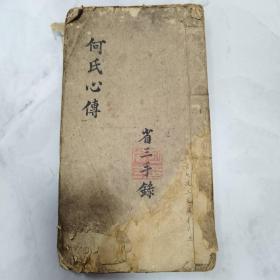 何氏心傳
省三手錄